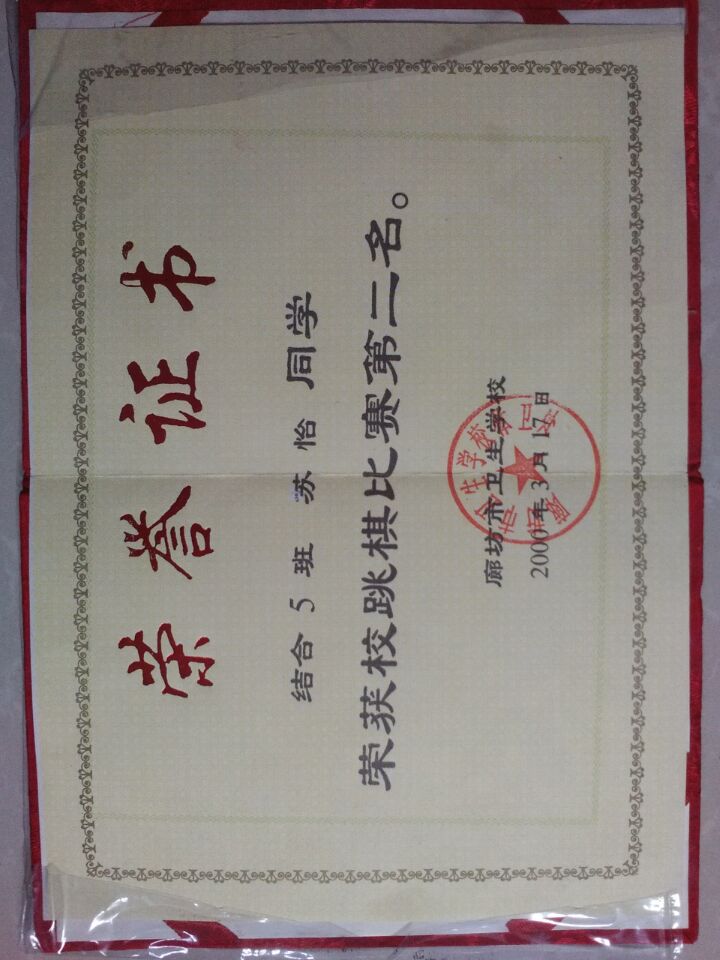 荣誉证书
结合 5 班 苏怡 同学
荣获校跳棋比赛第二名。
廊坊市卫生学校
2000年3月17日